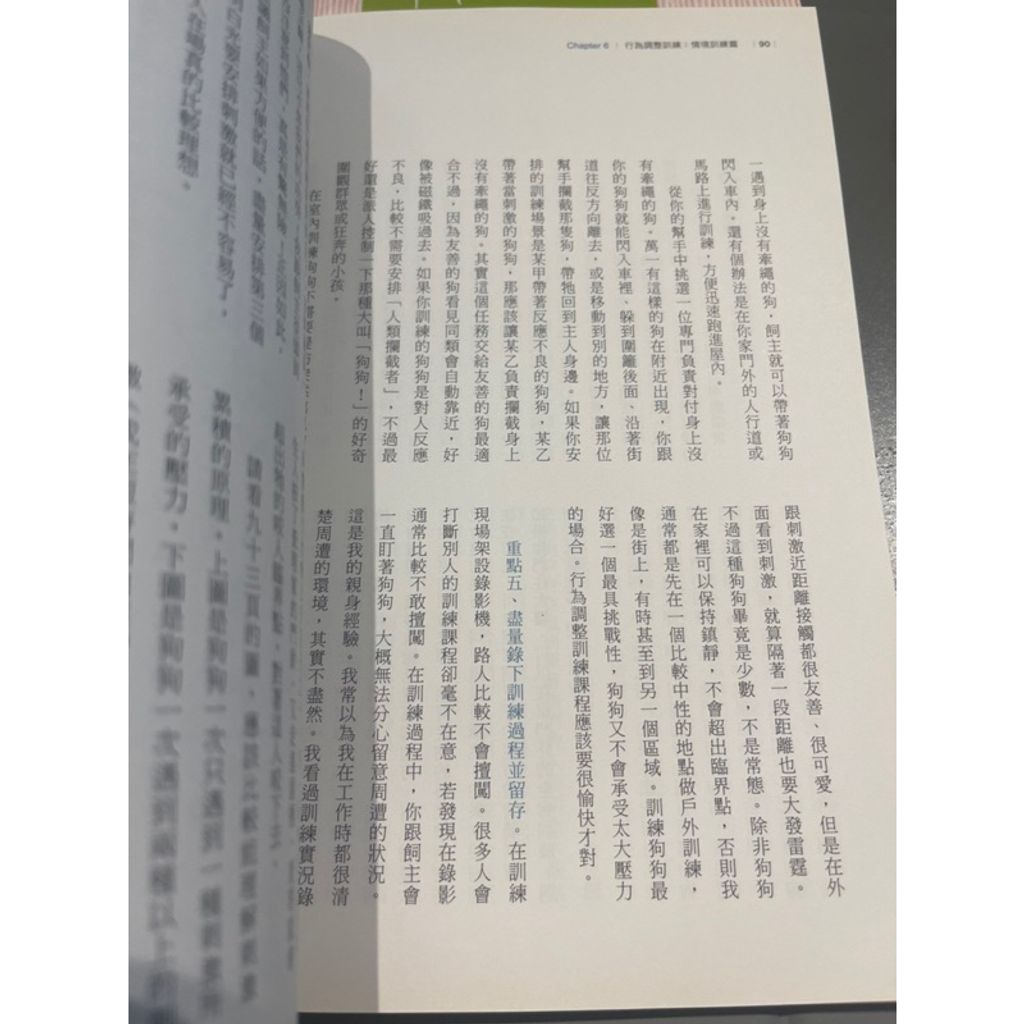 Chapter 6 | 行為調整訓練:情境訓練篇 | 90 |
一遇到身上沒有牽繩的狗,飼主就可以帶著狗狗
閃入車內。還有個辦法是在你家門外的人行道或
馬路上進行訓練,方便迅速跑進屋內。
從你的幫手中挑選一位專門負責對付身上沒
有牽繩的狗。萬一有這樣的狗在附近出現,你跟
你的狗狗就能閃入車裡、躲到圍籬後面、沿著街
道往反方向離去,或是移動到別的地方,讓那位
幫手攔截那隻狗,帶牠回到主人身邊。如果你安
排的訓練場景是某甲帶著反應不良的狗狗,某乙
帶著當刺激的狗狗,那應該讓某乙負責攔截身上
沒有牽繩的狗。其實這個任務交給友善的狗最適
合不過,因為友善的狗看見同類會自動靠近,好
像被磁鐵吸過去。如果你訓練的狗狗是對人反應
不良,比較不需要安排「人類攔截者」,不過最
好還是派人控制一下那種大叫「狗狗!」的好奇
圍觀群眾或狂奔的小孩。
跟刺激近距離接觸都很友善、很可愛,但是在外
面看到刺激,就算隔著一段距離也要大發雷霆。
不過這種狗狗畢竟是少數,不是常態。除非狗狗
在家裡可以保持鎮靜,不會超出臨界點,否則我
通常都是先在一個比較中性的地點做戶外訓練,
像是街上,有時甚至到另一個區域。訓練狗狗最
好選一個最具挑戰性,狗狗又不會承受太大壓力
的場合。行為調整訓練課程應該要很愉快才對。
重點五、盡量錄下訓練過程並留存。在訓練
現場架設錄影機,路人比較不會擅闖。很多人會
打斷別人的訓練課程卻毫不在意,若發現在錄影
通常比較不敢擅闖。在訓練過程中,你跟飼主會
一直盯著狗狗,大概無法分心留意周遭的狀況。
這是我的親身經驗。我常以為我在工作時都很清
楚周遭的環境,其實不盡然。我看過訓練實況錄
人在場真的比較理想。
請看九十三頁的圖,
累積的原理。上圖是狗狗一次只遇到一種
承受的壓力,下圖是狗狗一次遇到兩種以上的